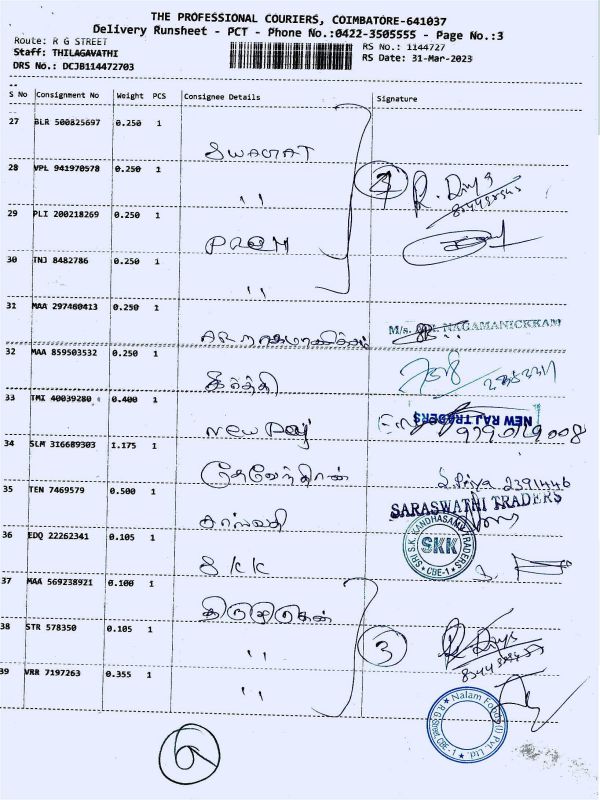 THE PROFESSIONAL COURIERS, COIMBATORE-641037
Delivery Runsheet - PCT - Phone No.:0422-3505555 - Page No.:3
Route: R G STREET
RS No.: 1144727
Staff: THILAGAVATHI
RS Date: 31-Mar-2023
DRS No.: DCJB114472703
S No Consignment No Weight PCS Consignee Details Signature
27 BLR 500825697 0.250 1
SWAGAT
28 VPL 941970578 0.250 1
,,
4 R. Divya
29 PLI 200218269 0.250 1
PREM
30 TNJ 8482786 0.250 1
,,
31 MAA 297460413 0.250 1
M/s. NAGAMANICKKAM
32 MAA 859503532 0.250 1
கீர்த்தி
33 TMI 40039280 0.400 1
NEW RAJ TRADERS
New Raj
34 SLM 316689303 1.175 1
தேவேந்திரன் S. Priya 2391446
35 TEN 7469579 0.500 1
SARASWATHI TRADERS
36 EDQ 22262341 0.105 1
SRI S.K. KANDHASAMY TRADERS
SKK
CBE-1
S K K
37 MAA 569238921 0.100 1
38 STR 578350 0.105 1
,,
3
39 VRR 7197263 0.355 1
,,
Nalam Foods (I) Pvt. Ltd.
R G Street CBE - 1
6